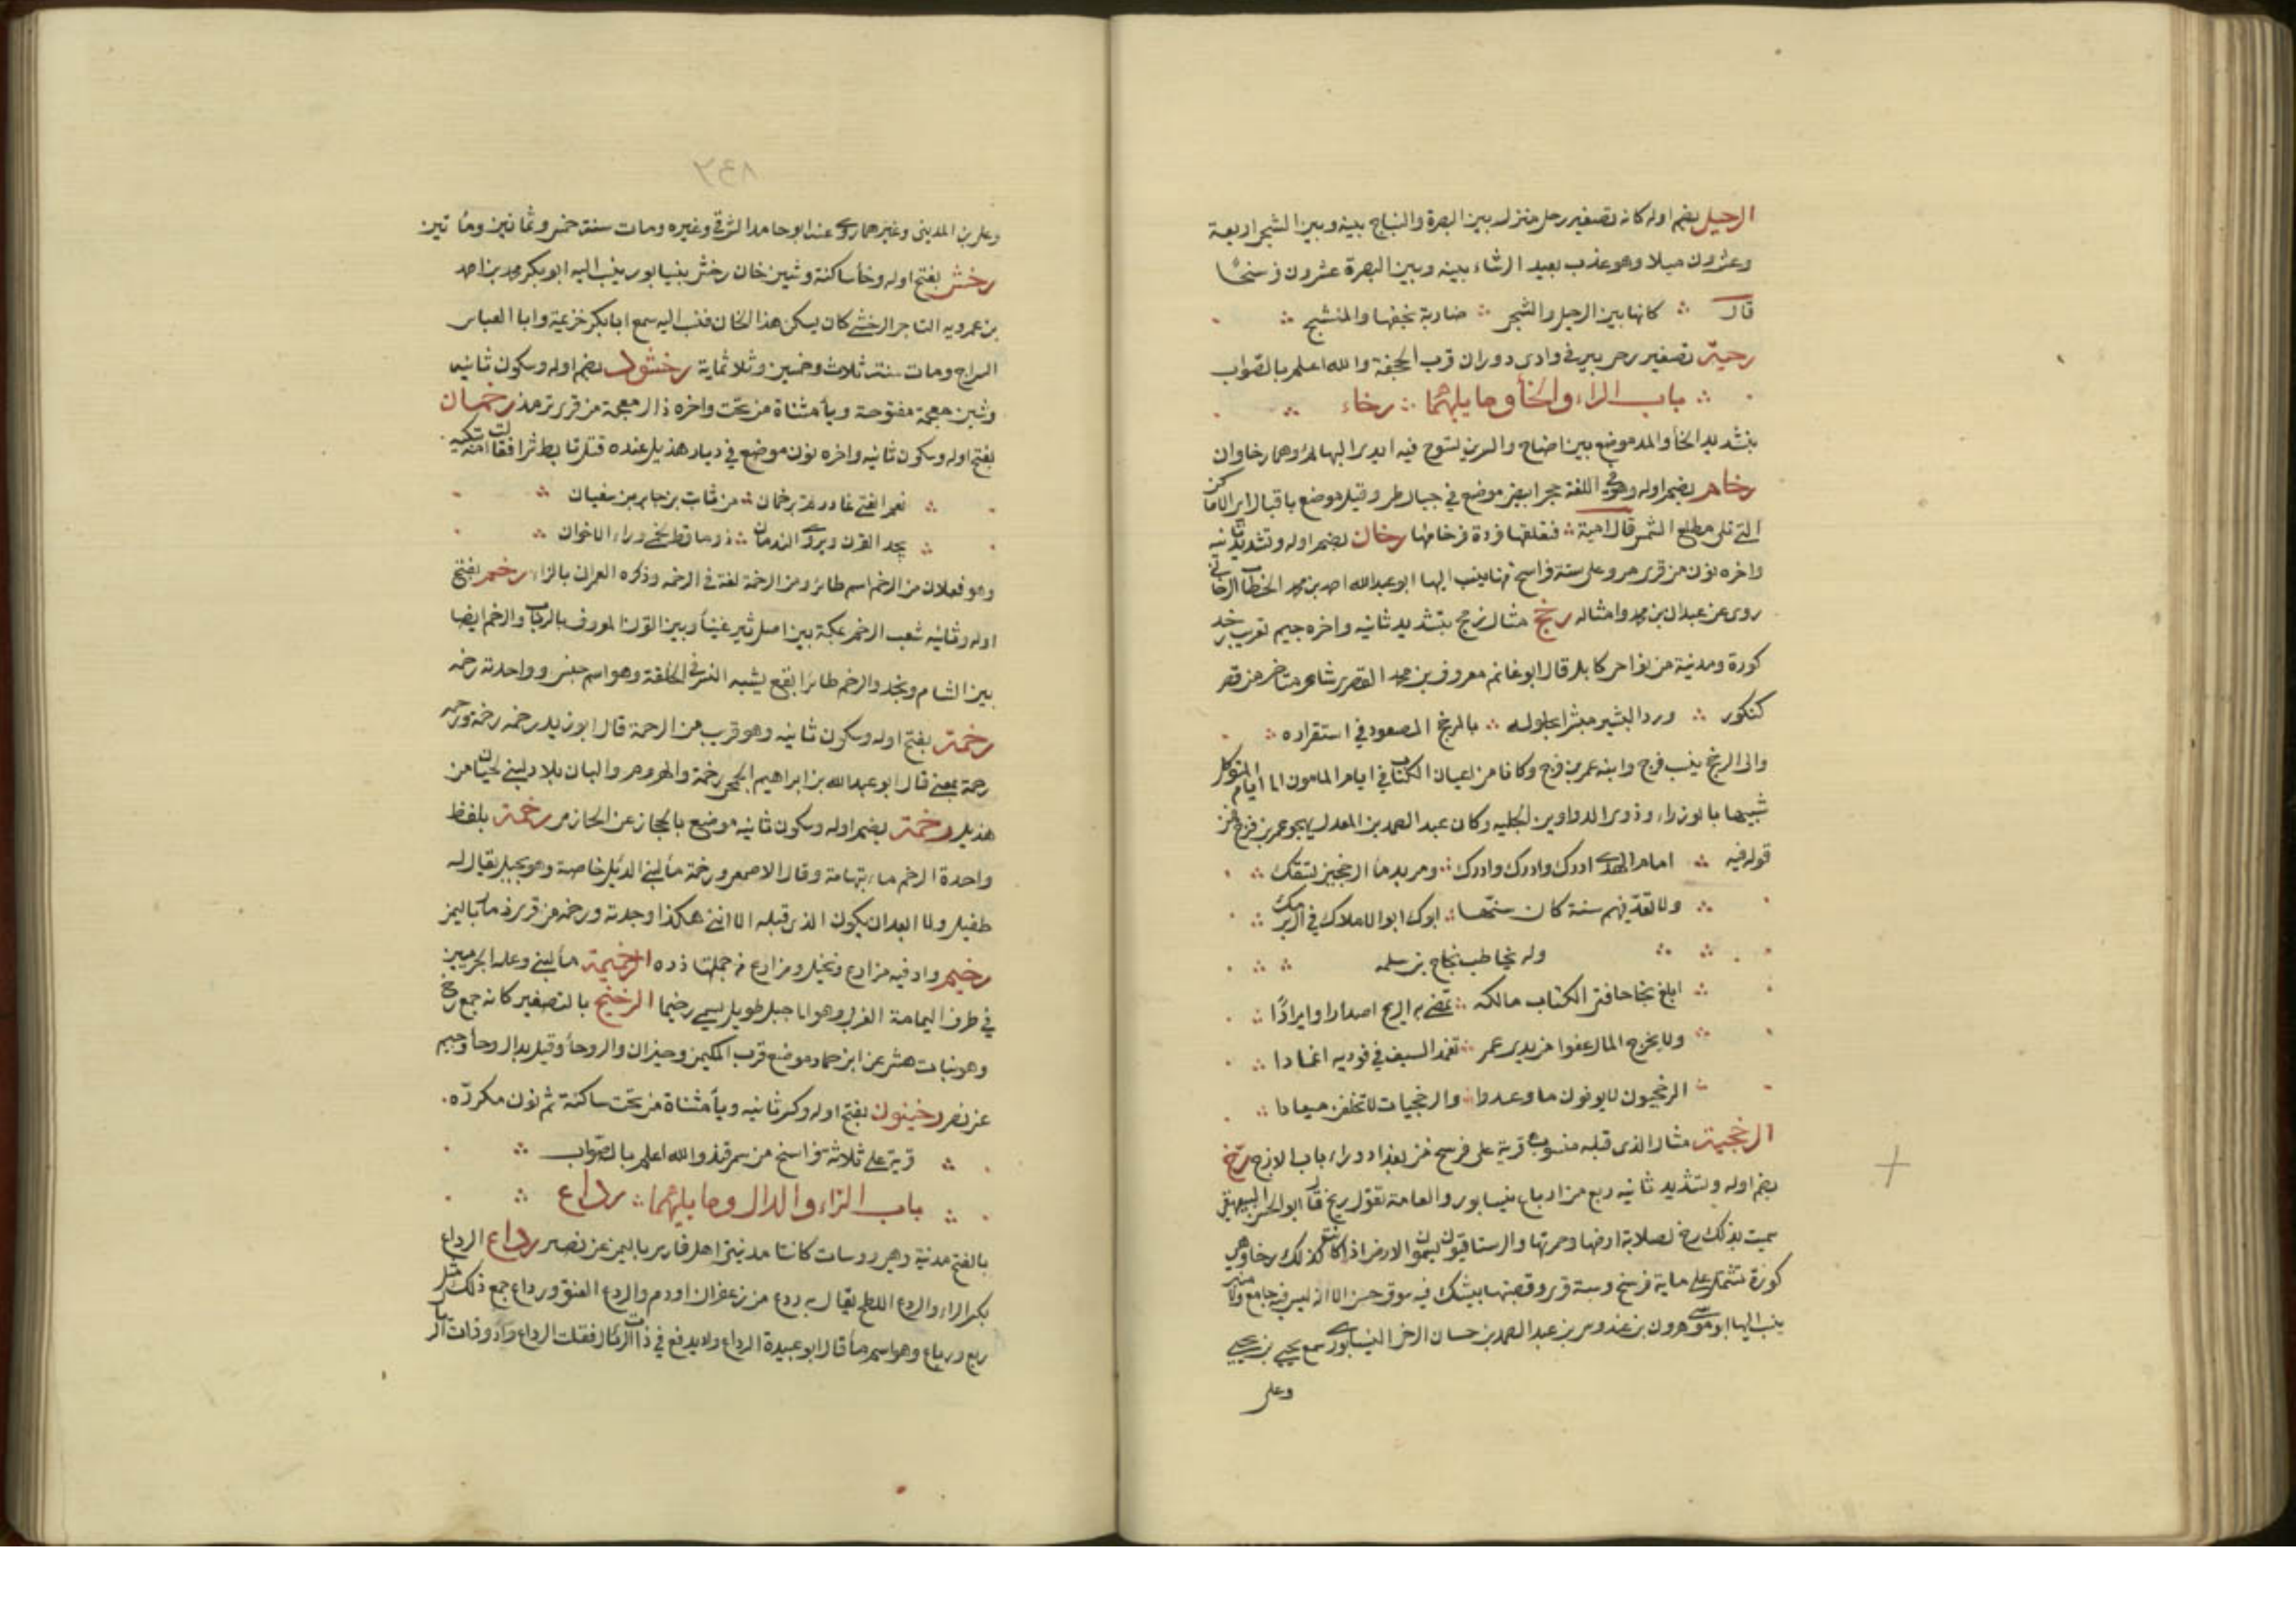 الرحيل بضم اوله كانه تصغير رحل منزل بين البصرة والنباج بينه وبين الشجى اربعة
وعشرون ميلا وهو عذب بعيد الرشاء بينه وبين البصرة عشرون فرسخًا
قال ∴ كانها بين الرحيل والشجى ∴ ضاربة بخفها والمنسج ∴
رحية تصغير رحى بير في وادى دوران قرب الجحفة والله اعلم بالصواب
∴ باب الراء والخا وما يليهما ∴ رخاء ∴
بتشديد الخا والمد موضع بين اضاخ والسرين تسوخ فيه ايدى البهايم وهما رخاوان
رخام بضم اوله وهو في اللغة حجر ابيض موضع في جبال طى وقيل موضع باقبال الاماكن
التى تلى مطلع الشمس قال لبيد ∴ فتعلقها فردة فرخامها رخان بضم اوله وتشديد ثانيه
واخره نون من قرى مرو على ستة فراسخ منها ينسب اليها ابو عبد الله احمد بن محمد الخطاب الرخانى
روى عن عبدان بن محمد وامثاله رخج مثال زمج بتشديد ثانيه واخره جيم تعريب رخد
كورة ومدينة من نواحى كابل قال ابو غانم معروف بن محمد القصرى شاعر متاخر من قصر
كنكور ∴ ورد البشير مبشرا بحلوله ∴ بالرخج المصعود في استقراره ∴
والى الرخج ينسب فرج وابنه عمر بن فرج وكانا من اعيان الكتاب في ايام المامون الى ايام المتوكل
شبيها بالوزراء وذوى الدواوين الجليه وكان عبد الصمد بن المعدل يهجو عمر بن فرج فمن
قوله فيه ∴ امام الهدى ادرك وادرك وادرك ∴ ومر بدماء الرخجيين تسفك ∴
∴ ولا تعد فيهم سنة كان سنها ∴ ابوك ابو الاملاك في ال برمك ∴
∴ ∴ وله يخاطب نجاح بن سلمه ∴ ∴
∴ ابلغ نجاحا فتى الكتاب مالكه ∴ تمضى به الريح اصدارا وايرادًا ∴
∴ ولا يخرج المال عفوا من يدى عمر ∴ تغمد السيف في فوديه اغمادا ∴
∴ الرخجيون لا يوفون ما وعدوا ∴ والرخجيات لا تخلفن ميعادا ∴
الرخجية مثال الذى قبله منسوب قرية على فرسخ من بغداد وراء باب الازج رخ
بضم اوله وتشديد ثانيه ربع من ارباع نيسابور والعامة تقول ريخ قال ابو الحسن البيهقى
سميت بذلك رخ لصلابة ارضها وحمرتها والرستاقيون يسمون الارض اذا كانت كذلك رخا وهى
كورة تشتمل على ماية فرسخ وستة قرى وقصبتها بيشك فيه سوق حسن الا انه ليس فيه جامع ولا منبر
ينسب اليها ابو موسى هرون بن عبدوس بن عبد الصمد بن حسان الرخى النيسابورى سمع يحيى بن يحيى
وعلى
٨٤٢
وعلى بن المدينى وغيرهما روى عنه ابو حامد الشرقى وغيره ومات سنة خمس وثمانين ومأتين
رخش بفتح اوله وخأ ساكنة وشين خان رخش بنيسابور ينسب اليه ابو بكر محمد بن احمد
بن عمرويه التاجر الرخشى كان يسكن هذا الخان فنسب اليه سمع ابا بكر خزيمة وابا العباس
السراج ومات سنة ثلاث وخمسين وثلاثماية رخشيوذ بضم اوله وسكون ثانيه
وشين معجمة مفتوحة ويأ مثناة من تحت واخره ذال معجمة من قرى ترمذ رخمان
بفتح اوله وسكون ثانيه واخره نون موضع في ديار هذيل عنده قتل تابط شرا فقالت امه تبكيه
∴ نعم الفتى غادرتم برخمان ∴ من ثابت بن جابر بن سفيان ∴
∴ يجدل القرن ويروى الندمان ∴ ذو ماقط يحمى وراء الاخوان ∴
وهو فعلان من الرخم اسم طائر ومن الرخمة لغة في الرحمه وذكره العمرانى بالزاى رخم بفتح
اوله وثانيه شعب الرخم بمكة بين اصل ثبير غيناء وبين القرن المعروف بالرباب والرخم ايضا
بين الشام ونجد والرخم طائر ابقع يشبه النسر في الخلقة وهو اسم جنس وواحدته رخمه
رخمة بفتح اوله وسكون ثانيه وهو قريب من الرحمة قال ابو زيد رخمه رخمة ورحمه
رحمة بمعنى قال ابو عبد الله بن ابراهيم الجمحى رخمة والهزوم والبان بلاد لبنى لحيان من
هذيل رخمة بضم اوله وسكون ثانيه موضع بالحجاز عن الحازمى رخمة بلفظ
واحدة الرخم ماء بتهامة وقال الاصمعى ورخمة مأ لبنى الديل خاصة وهو بجبل يقال له
طفيل ولا ابعد ان يكون الذى قبله الا اننى هكذا وجدته ورخمه من قرى ذمار باليمن
رخيم واد فيه مزارع ونخيل ومزارع من جملتها ذره الرخيمة مأ لبنى وعلة الجرميين
في طرف اليمامة الغربى وهو اما جبل طويل يسمى رخيما الرخيخ بالتصغير كانه جمع رخ
وهو نبات هش عن ابن حماد موضع قرب المكيمن وحيزان والروحأ وقيل بدال الروحأ وجيم
عن نصر رخينون بفتح اوله وكسر ثانيه ويأ مثناة من تحت ساكنة ثم نون مكررّه
∴ قرية على ثلاثة فراسخ من سمرقند والله اعلم بالصواب ∴
∴ باب الراء والدال وما يليهما ∴ رداع ∴
بالفتح مدينة وهى ووسات كانتا مدينتى اهل فارس باليمن عن نصر رداع الرداع
بكسر الراء والردع اللطخ يقال به ردع من زعفران او دم والردع العنق ورداع جمع ذلك مثل
ربع ورباع وهو اسم مأ قال ابو عبيدة الرداع واد يدفع في ذات الرئال